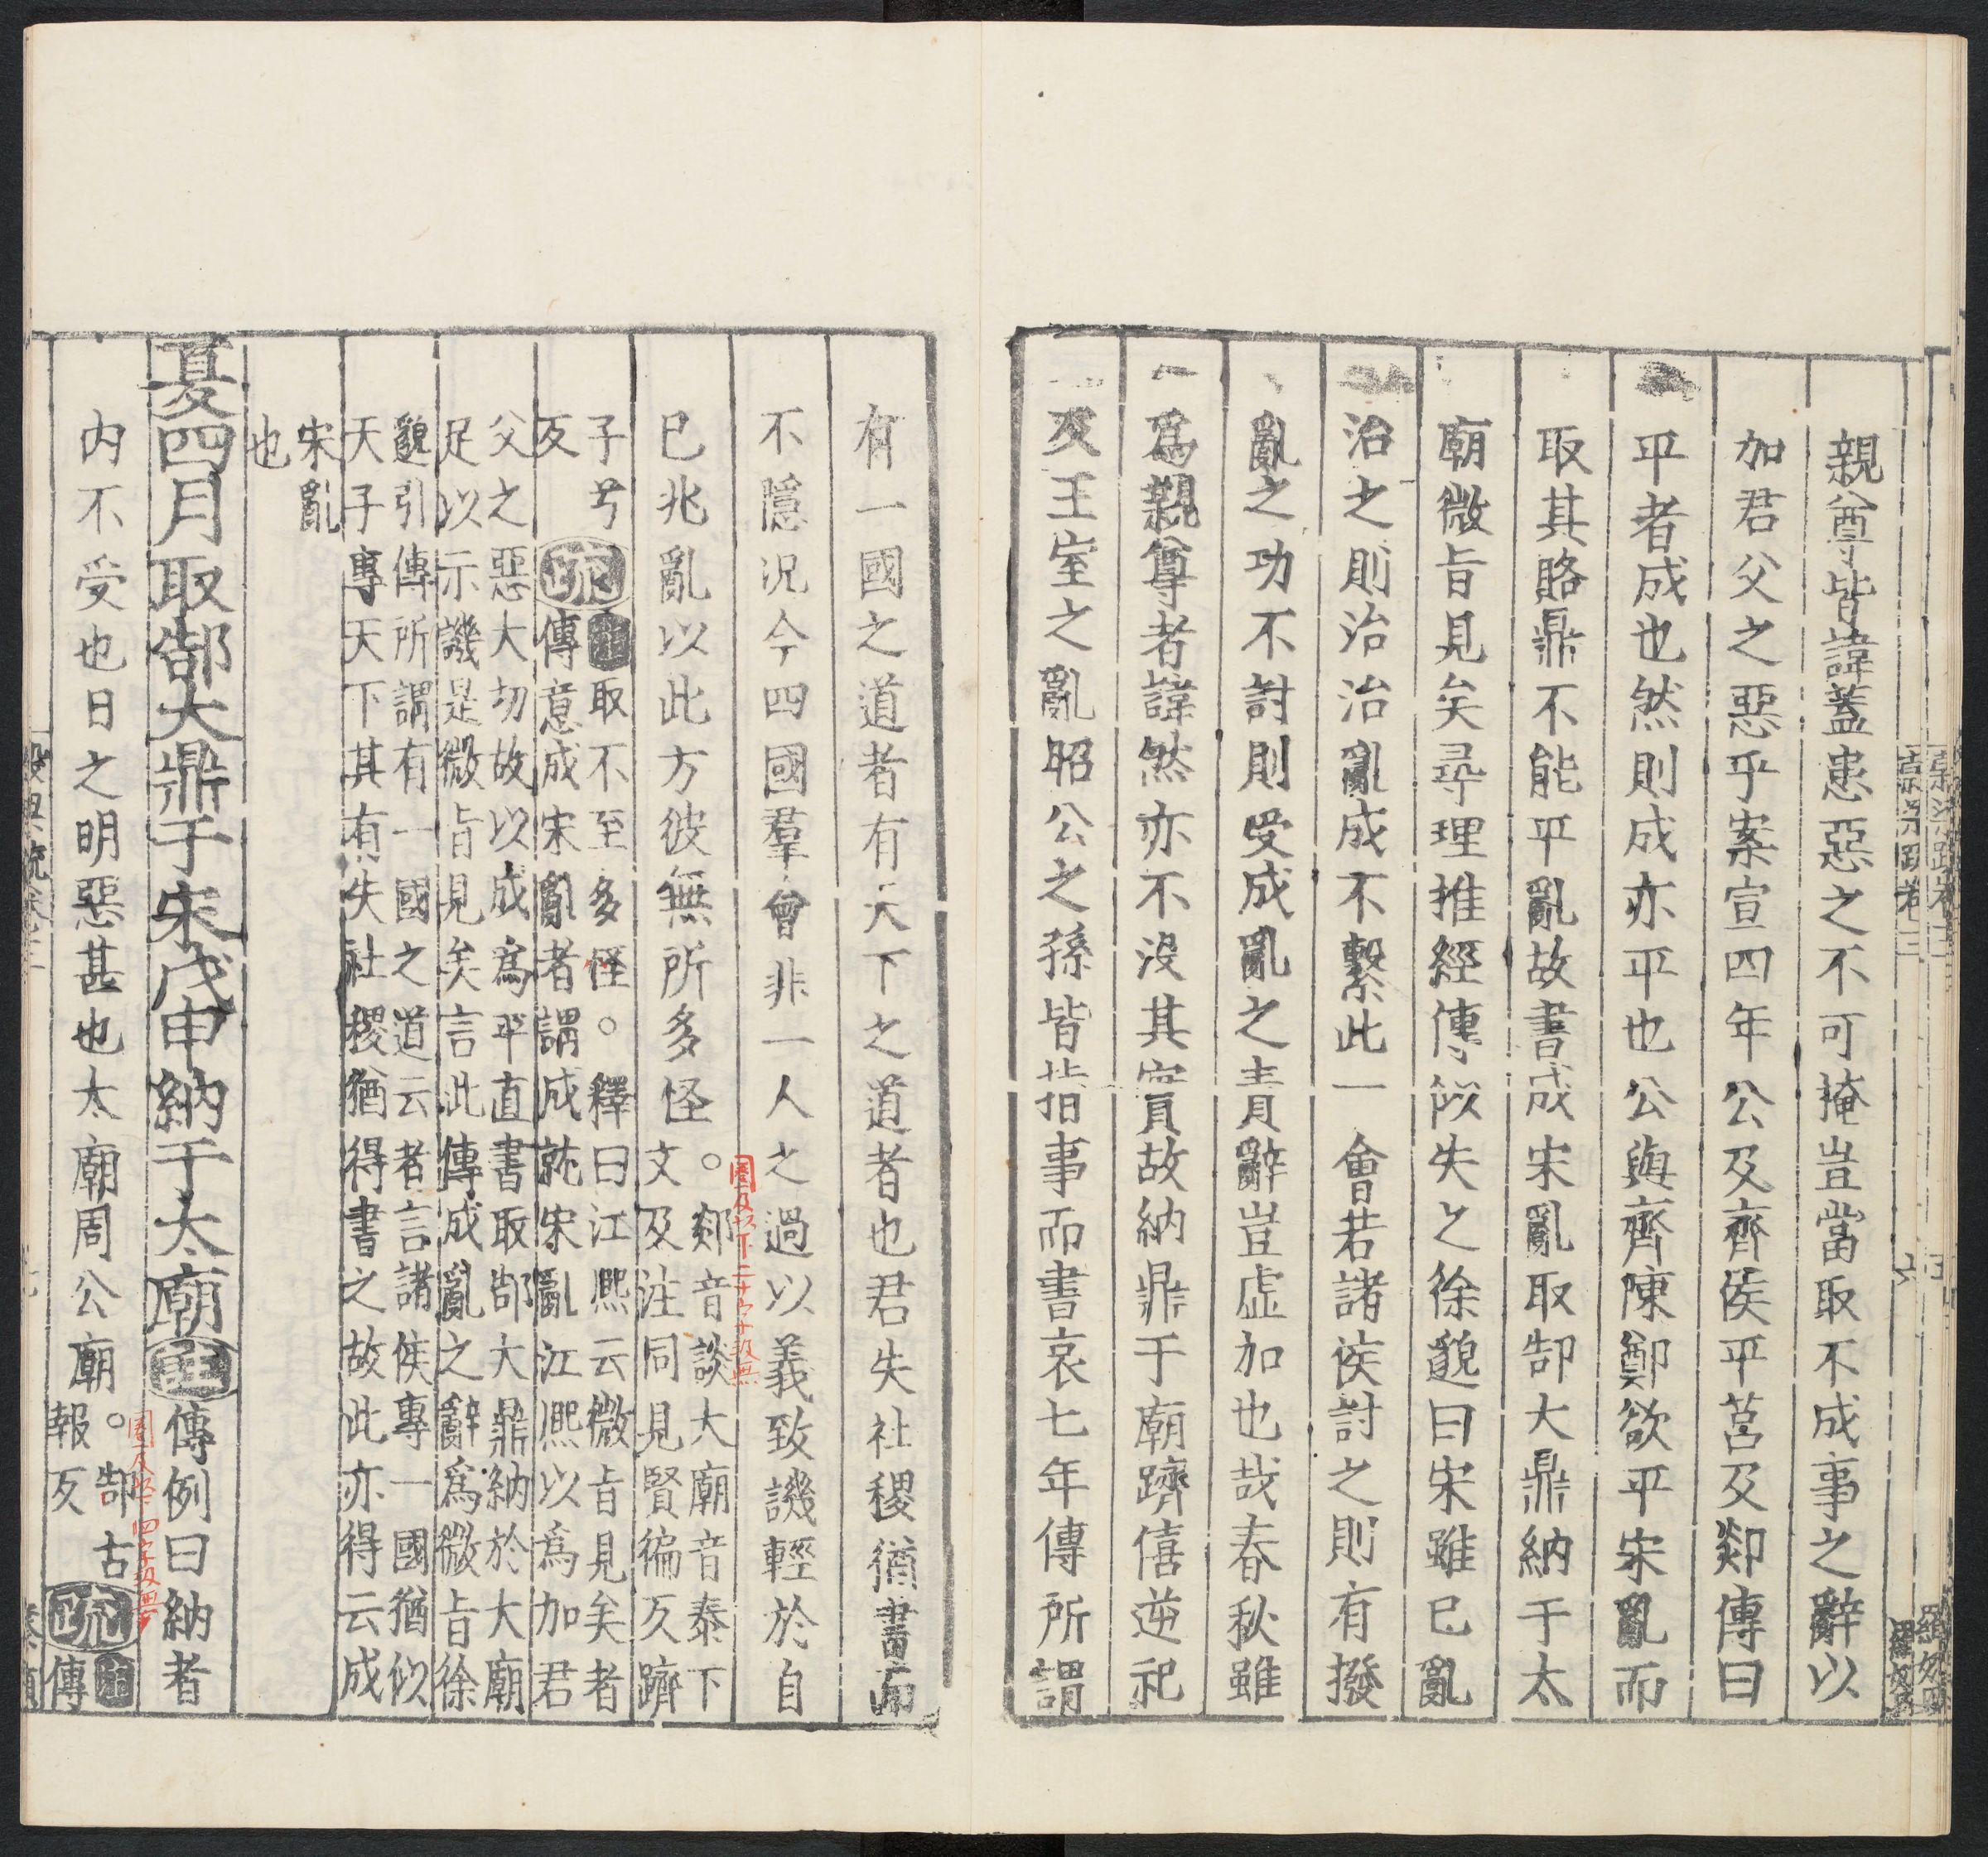 親尊皆諱蓋患惡之不可掩豈當取不成事之辭以
加君父之惡乎案宣四年公及齊侯平莒及郯傳曰
平者成也然則成亦平也公與齊陳鄭欲平宋亂而
取其賂鼎不能平亂故書成宋亂取郜大鼎納于太
廟微旨見矣尋理推經傳似失之徐邈曰宋雖已亂
治之則治治亂成不繫此一會若諸侯討之則有撥
亂之功不討則受成亂之責辭豈虛加也哉春秋雖
為親尊者諱然亦不沒其實故納鼎于廟躋僖逆祀
及王室之亂昭公之孫皆指事而書哀七年傳所謂
有一國之道者有天下之道者也君失社稷猶書而
不隱況今四國羣會非一人之過以義致譏輕於自
已兆亂以此方彼無所多怪
。郯音談大廟音泰下
文及注同見賢徧反躋
子兮
反
疏
注取不至多怪。釋曰江熙云微旨見矣者
傳意成宋亂者謂成就宋亂江熙以為加君
父之惡大切故以成為平直書取郜大鼎納於大廟
足以示譏是微旨見矣言此傳成亂之辭為微旨徐
邈引傳所謂有一國之道云者言諸侯專一國猶似
天子專天下其有失社稷猶得書之故此亦得云成
宋亂
也
夏四月取郜大鼎于宋戊申納于太廟
注
傳例曰納者
內不受也日之明惡甚也太廟周公廟
。郜古
報反
疏
注
傳